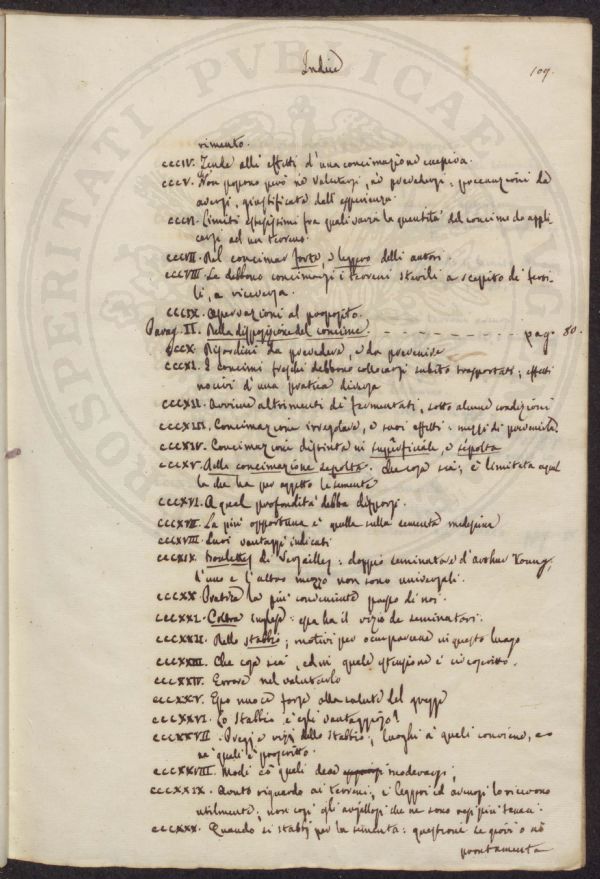 Indice
109.
rimento.
CCCIV. Tende alli effetti d'una concimazione eccessiva.
CCCV. Non possono però nè valutarsi, nè prevedersi: precauzioni da
aversi, giustificate dall'esperienza.
CCCVI. Limiti estesissimi fra quali varia la quantità del concime da appli
carsi ad un terreno.
CCCVII. Del concimar forte, o leggero delli autori.
CCCVIII. Se debbono concimarsi i terreni sterili a scapito de' ferti
li, o viceversa.
CCCIX. Osservazioni al proposito.
Parag. II. Della disposizione del concime. - - - - - - - - - - pag. 80.
CCCX. Disordini da prevedere, e da prevenire
CCCXI. I concimi freschi debbono collocarsi subito trasportati; effetti
nocivi d'una pratica diversa
CCCXII. Avviene altrimenti de' fermentati, sotto alcune condizioni
CCCXIII. Concimazione irregolare, e suoi effetti: mezzi di prevenirla.
CCCXIV. Concimazione distinta in superficiale, e sepolta
CCCXV. Della concimazione sepolta. Che cosa sia; e limitata a quel
la che ha per oggetto le sementa
CCCXVI. A qual profondità debba disporsi.
CCCXVII. La più opportuna è quella sulla sementa medesima
CCCXVIII. Suoi vantaggi indicati
CCCXIX. di Versailles: doppio seminatore d'Arthur Young,
l'uno e l'altro mezzo non sono universali.
CCCXX. Pratica la più conveniente presso di noi.
CCCXXI. Coltre Inglese: essa ha il vizio de' seminatori.
CCCXXII. Dello stabbio; motivi per occuparcene in questo luogo
CCCXXIII. Che cosa sia, ed in quale estensione è circoscritto.
CCCXXIV. Errore nel valutarlo
CCCXXV. Esso nuoce forse alla salute del gregge
CCCXXVI. Lo stabbio è egli vantaggioso?
CCCXXVII. Pregi e vizi dello stabbio; luoghi a' quali conviene, e
ne' quali è proscritto.
CCCXXVIII. Modi co' quali deve moderarsi;
CCCXXIX. Avuto riguardo ai terreni, i leggeri ed arenosi lo ricevono
utilmente; non così gli argillosi che ne sono resi più tenaci.
CCCXXX. Quando si stabbj per la sementa: questione se giovi o nò
prontamente